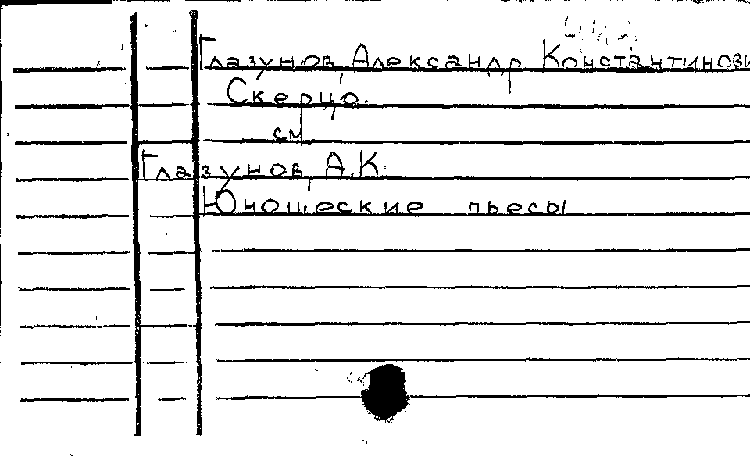 Глазунов, Александр Константинови
Скерцо.
см
Глазунов, А.К.
Юношеские пьесы